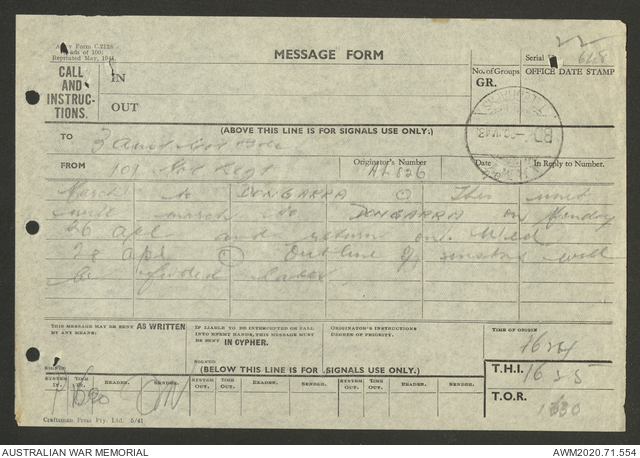 Army Form C.2128
(Pads of 100)
Reprinted May, 1941
MESSAGE FORM
Serial
628
CALL
AND
INSTRUC-
TIONS.
IN
OUT
No. of Groups
GR.
OFFICE DATE STAMP
(ABOVE THIS LINE IS FOR SIGNALS USE ONLY:)
TO
3 Aust
FROM
101 Regt
Originator's Number
AL 826
Date
In Reply to Number.
March to DONGARRA This unit
will march to DONGARRA on Monday
26 Apl and return on Wed
28 Apl Outline of will
be later
THIS MESSAGE MAY BE SENT AS WRITTEN
BY ANY MEANS:
IF LIABLE TO BE INTERCEPTED OR FALL
INTO ENEMY HANDS, THIS MESSAGE MUST
BE SENT IN CYPHER.
ORIGINATOR'S INSTRUCTIONS
DEGREE OF PRIORITY.
TIME OF ORIGIN
1624
SIGNED
SIGNED
(BELOW THIS LINE IS FOR SIGNALS USE ONLY:)
T.H.I. 1625
SYSTEM IN. TIME IN. READER. SENDER. SYSTEM OUT. TIME OUT. READER. SENDER. SYSTEM OUT. TIME OUT. READER. SENDER.
T.O.R.
1630
Craftsman Press Pty. Ltd. 5/41
AUSTRALIAN WAR MEMORIAL
AWM2020.71.554